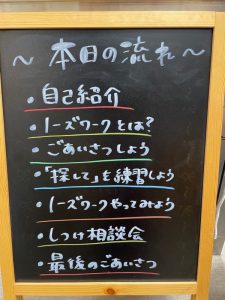 ～本日の流れ～
・自己紹介
・ノーズワークとは？
・ごあいさつしよう
・「探して」を練習しよう
・ノーズワークやってみよう
・しつけ相談会
・最後のごあいさつ